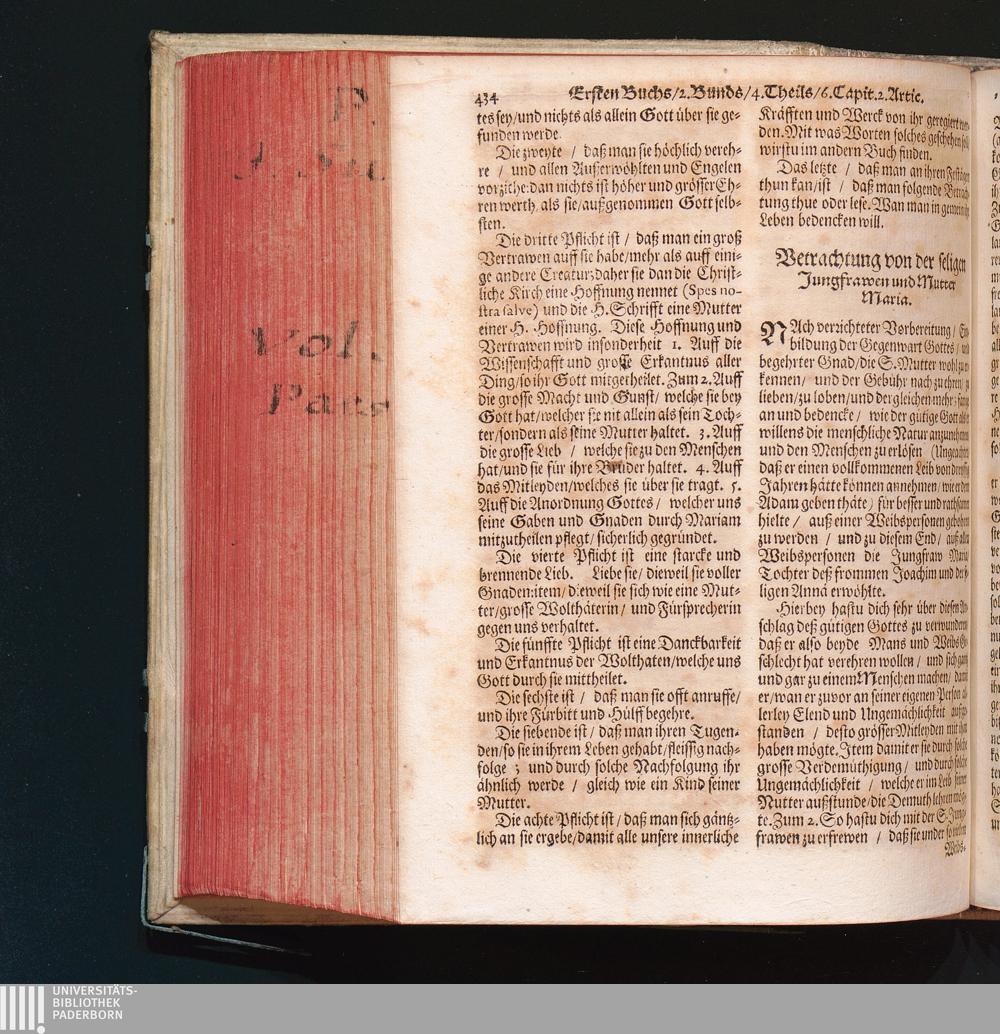 P.
Vol.
Paes
434 Ersten Buchs/2. Bunds/4. Theils/6. Capit. 2. Artic.
tes sey/und nichts als allein Gott über sie ge-
funden werde.
Die zweyte / daß man sie höchlich vereh-
re / und allen Außerwöhlten und Engelen
vorzihe: dan nichts ist höher und grösser Eh-
ren werth, als sie/außgenommen Gott selb-
sten.
Die dritte Pflicht ist / daß man ein groß
Vertrawen auff sie habe/mehr als auff eini-
ge andere Creatur: daher sie dan die Christ-
liche Kirch eine Hoffnung nennet (Spes no-
stra salve) und die H. Schrifft eine Mutter
einer H. Hoffnung. Diese Hoffnung und
Vertrawen wird insonderheit 1. Auff die
Wissenschafft und grosse Erkantnus aller
Ding/so ihr Gott mitgetheilet. Zum 2. Auff
die grosse Macht und Gunst/ welche sie bey
Gott hat/welcher sie nit allein als sein Toch-
ter/sondern als seine Mutter haltet. 3. Auff
die grosse Lieb / welche sie zu den Menschen
hat/und sie für ihre Brüder haltet. 4. Auff
das Mitleyden/welches sie über sie tragt. 5.
Auff die Anordnung Gottes / welcher uns
seine Gaben und Gnaden durch Mariam
mitzutheilen pflegt/sicherlich gegründet.
Die vierte Pflicht ist eine starcke und
brennende Lieb. Liebe sie/ dieweil sie voller
Gnaden: item/ dieweil sie sich wie eine Mut-
ter/grosse Wolthäterin / und Fürsprecherin
gegen uns verhaltet.
Die fünffte Pflicht ist eine Danckbarkeit
und Erkantnus der Wolthaten/welche uns
Gott durch sie mittheilet.
Die sechste ist / daß man sie offt anruffe/
und ihre Fürbitt und Hülff begehre.
Die siebende ist / daß man ihren Tugen-
den/so sie in ihrem Leben gehabt/fleissig nach-
folge ; und durch solche Nachfolgung ihr
ähnlich werde / gleich wie ein Kind seiner
Mutter.
Die achte Pflicht ist / daß man sich gäntz-
lich an sie ergebe/damit alle unsere innerliche
Kräfften und Werck von ihr geregiert wer-
den. Mit was Worten solches geschehen soll
wirstu im andern Buch finden.
Das letzte / daß man an ihren Festägen
thun kan/ist / daß man folgende Betrach-
tung thue oder lese. Wan man in gemein ihr
Leben bedencken will.
Betrachtung von der seligen
Jungfrawen und Mutter
Maria.
NAch verrichteter Vorbereitung / Ein-
bildung der Gegenwart Gottes / und
begehrter Gnad/die S. Mutter wohl zu er-
kennen / und der Gebühr nach zu ehren/ zu
lieben/zu loben/und dergleichen mehr: fange
an und bedencke / wie der gütige Gott als er
willens die menschliche Natur anzunehmen
und den Menschen zu erlösen (Ungeachtet
daß er einen vollkommenen Leib von dreyssig
Jahren hätte können annehmen/wie er dem
Adam geben thäte) für besser und rathsamer
hielte / auß einer Weibspersonen gebohren
zu werden / und zu diesem End/ auß allen
Weibspersonen die Jungfraw Maria
Tochter deß frommen Joachim und der hei-
ligen Anna erwöhlte.
Hierbey hastu dich sehr über diesen An-
schlag deß gütigen Gottes zu verwunderen
daß er also beyde Mans und Weibs Ge-
schlecht hat verehren wollen / und sich gantz
und gar zu einem Menschen machen/ damit
er/wan er zuvor an seiner eigenen Person al-
lerley Elend und Ungemächlichkeit außge-
standen / desto grösser Mitleyden mit ihm
haben mögte. Item damit er sie durch solche
grosse Verdemüthigung / und durch solche
Ungemächlichkeit / welche er im Leib seiner
Mutter außstunde/die Demuth lehren mög-
te. Zum 2. So hastu dich mit der S. Jung-
frawen zu erfrewen / daß sie under so vielen
Weibs-
UNIVERSITÄTS-
BIBLIOTHEK
PADERBORN